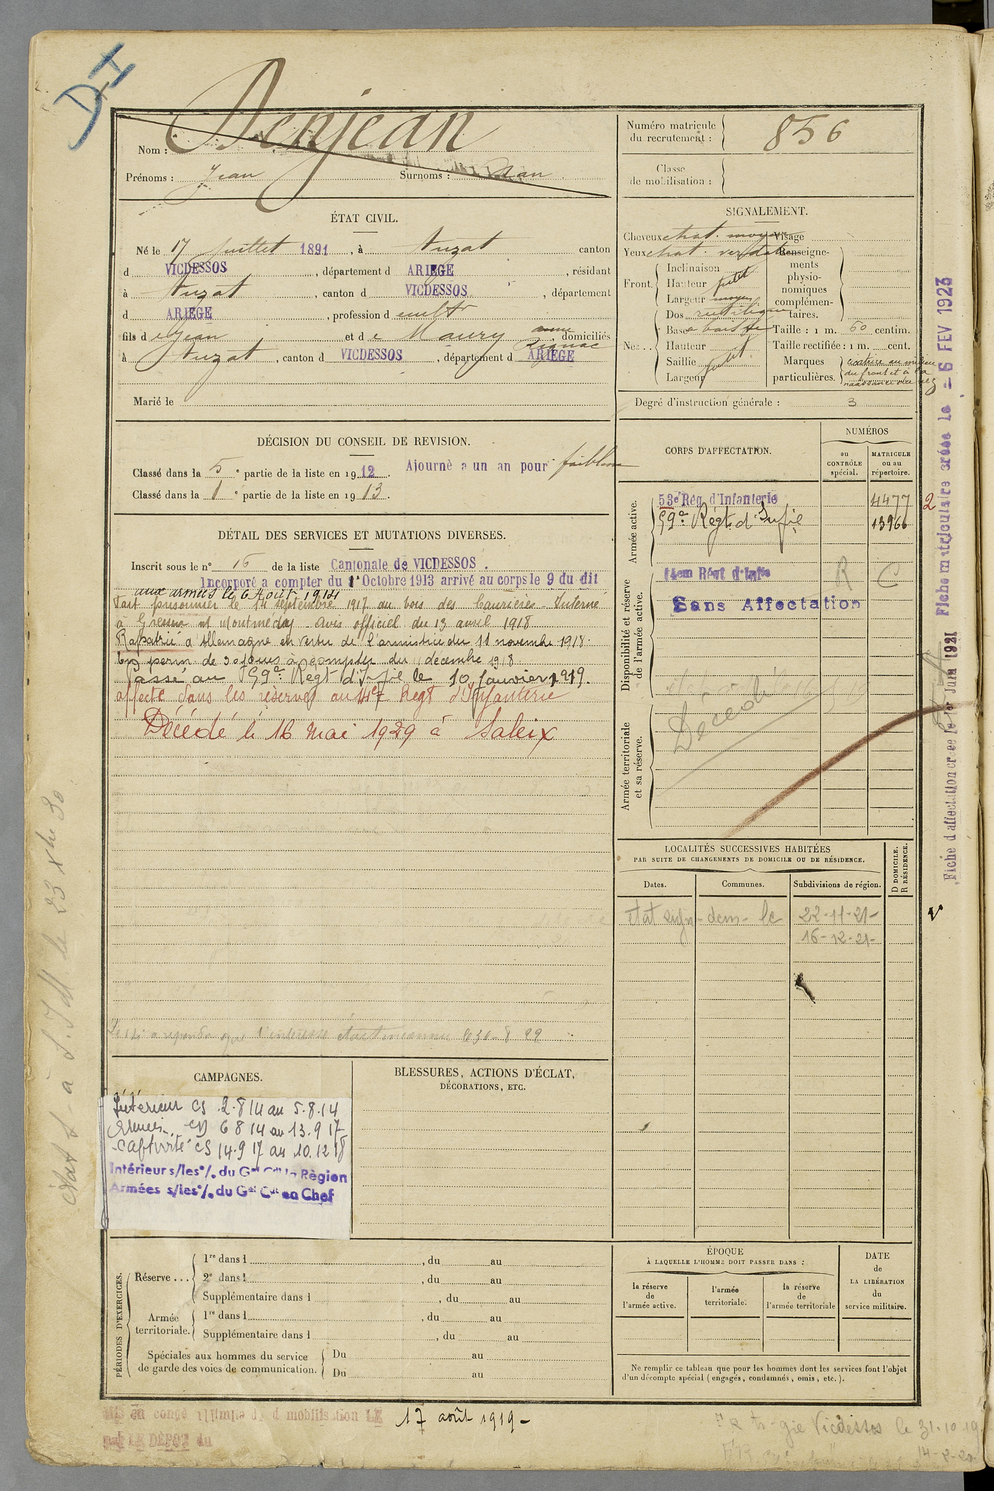 DI
Nom : Denjean
Prénoms : Jean Surnoms :
Numéro matricule du recrutement : 856
Classe de mobilisation :
ÉTAT CIVIL.
Né le 17 Juillet 1891, à Auzat canton
d VICDESSOS, département d ARIÈGE, résidant
à Auzat, canton d VICDESSOS, département
d ARIÈGE, profession de cultr
fils d et de Maury domiciliés
à Auzat, canton d VICDESSOS, département d ARIÈGE
Marié le
SIGNALEMENT.
Cheveux chat. moyen
Yeux chat. verdâtre
Front.
Inclinaison
Hauteur petit
Largeur moyen
Nez..
Dos rectiligne
Base à baisse
Hauteur
Saillie petit.
Largeur
Visage
Renseignements physionomiques complémentaires.
Taille : 1 m. 60 centim.
Taille rectifiée : 1 m. cent.
Marques particulières. cicatrice au milieu
du front et à la
Degré d'instruction générale : 3
DÉCISION DU CONSEIL DE REVISION.
Classé dans la 5e partie de la liste en 1912 Ajourné a un an pour faiblesse
Classé dans la 1e partie de la liste en 1913.
DÉTAIL DES SERVICES ET MUTATIONS DIVERSES.
Inscrit sous le n° 16 de la liste Cantonale de VICDESSOS.
Incorporé a compter du 1er Octobre 1913 arrivé au corps le 9 du dit
aux armées le 6 Août 1914
Fait prisonnier le 14 septembre 1917 au bois des Caurières. Interné
à Giessen et Montmédy. Avis officiel du 13 avril 1918
Rapatrié d'Allemagne en vertu de l'armistice du 11 novembre 1918.
En perm de 30 jours à compter du décembre 1918
Passé au 59e Régt d'Infie le 10 Janvier 1919.
affecté dans les réserves au 14e Régt d'Infanterie
Décédé le 16 mai 1929 à Saleix
CORPS D'AFFECTATION.
NUMÉROS
au CONTRÔLE spécial.
MATRICULE ou au répertoire.
Armée active.
53e Rég. d'Infanterie 4477
59e Régt d'Infie 13966
2
Disponibilité et réserve de l'armée active.
14em Régt d'Infie R C
Sans Affectation
Armée territoriale et sa réserve.
Décédé
Fiche matriculaire créée le - 6 FEV 1923
Fiche d'affectation créée le 1er Juin 1921
LOCALITÉS SUCCESSIVES HABITÉES
PAR SUITE DE CHANGEMENTS DE DOMICILE OU DE RÉSIDENCE.
Dates.
Communes.
Subdivisions de région.
D DOMICILE. R RÉSIDENCE.
22-11-21-
16-12-21-
CAMPAGNES.
Intérieur CS 2.8 14 au 5.8.14
Armées CD 6 8 14 au 13.9 17
Captivité CS 14.9 17 au 10.12 18
Intérieur s/les °/. du Gal Ct la Région
Armées s/les °/. du Gal Ct en Chef
BLESSURES, ACTIONS D'ÉCLAT,
DÉCORATIONS, ETC.
PÉRIODES D'EXERCICES.
Réserve...
1re dans l , du au
2e dans l , du au
Supplémentaire dans l , du au
Armée territoriale.
1re dans l , du au
Supplémentaire dans l , du au
Spéciales aux hommes du service
de garde des voies de communication.
Du au
Du au
ÉPOQUE
À LAQUELLE L'HOMME DOIT PASSER DANS :
la réserve de l'armée active.
l'armée territoriale.
la réserve de l'armée territoriale
DATE
de
LA LIBÉRATION
du
service militaire.
Ne remplir ce tableau que pour les hommes dont les services font l'objet
d'un décompte spécial (engagés, condamnés, omis, etc.).
Mis en congé illimité de démobilisation LE 17 août 1919-
par LE DÉPOT du
Vicdessos le 31-10-19